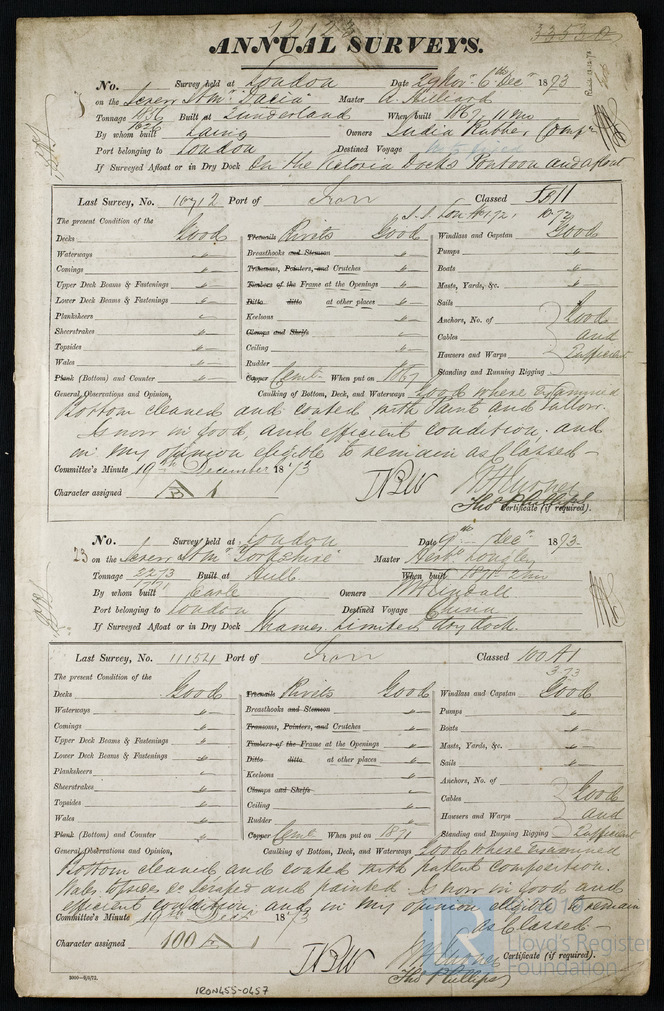 12123
33530
ANNUAL SURVEYS.
No. Survey held at London Date 29 Nov. 6th Decr 1873
on the Screw Stmr "Dacia" Master A. Hilliard
Tonnage 1836 Built at Sunderland When built 1867 11 mo
By whom built Laing Owners India Rubber Compy
Port belonging to London Destined Voyage
If Surveyed Afloat or in Dry Dock On the Victoria Docks Pontoon and afloat
Last Survey, No. 10712 Port of Iron Classed
The present Condition of the S.S. Lon No 1, 72, 10.72
Decks Good Treenails Rivits Good Windlass and Capstan Good
Waterways " Breasthooks and Stemson " Pumps "
Comings " Transoms, Pointers, and Crutches " Boats "
Upper Deck Beams & Fastenings " Timbers of the Frame at the Openings " Masts, Yards, &c. "
Lower Deck Beams & Fastenings " Ditto ditto at other places " Sails
Planksheers Keelsons " Anchors, No. of Good
Sheerstrakes " Clamps and Shelfs Cables and
Topsides " Ceiling Hawsers and Warps Sufficient
Wales " Rudder " Standing and Running Rigging
Plank (Bottom) and Counter " Copper Cemt When put on 1867
General Observations and Opinion, Caulking of Bottom, Deck, and Waterways Good where Examined
Bottom cleaned and coated with Paint and tallow.
Is now in good and efficient condition, and
in my opinion eligible to remain as Classed —
Committee's Minute 19th December 1873
Character assigned
Thos Phillips Certificate (if required).
No. Survey held at London Date 9th Decr 1873.
23 on the Screw Stmr "Yorkshire" Master Herbt Longley
Tonnage 2273 Built at Hull When built 1871 2 mo
By whom built Earle Owners
Port belonging to London Destined Voyage China
If Surveyed Afloat or in Dry Dock Thames Limited dry dock.
Last Survey, No. 11154 Port of Iron Classed 100 A1
The present Condition of the 3.73
Decks Good Treenails Rivits Good Windlass and Capstan Good
Waterways " Breasthooks and Stemson " Pumps "
Comings " Transoms, Pointers, and Crutches " Boats "
Upper Deck Beams & Fastenings " Timbers of the Frame at the Openings " Masts, Yards, &c. "
Lower Deck Beams & Fastenings " Ditto ditto. at other places " Sails "
Planksheers Keelsons " Anchors, No. of
Sheerstrakes " Clamps and Shelfs Cables Good
Topsides " Ceiling " Hawsers and Warps and
Wales " Rudder " Standing and Running Rigging Sufficient
Plank (Bottom) and Counter " Copper Cemt When put on 1871
General Observations and Opinion, Caulking of Bottom, Deck, and Waterways Good where Examined
Bottom cleaned and coated with Patent Composition.
Wales topsides &c Scraped and painted Is now in good and
efficient condition and in my opinion eligible to remain
as Classed —
Committee's Minute 19th Decr 1873
Character assigned 100 A 1
Thos Phillips Certificate (if required).
IRON455-0457
Lloyd's Register
Foundation